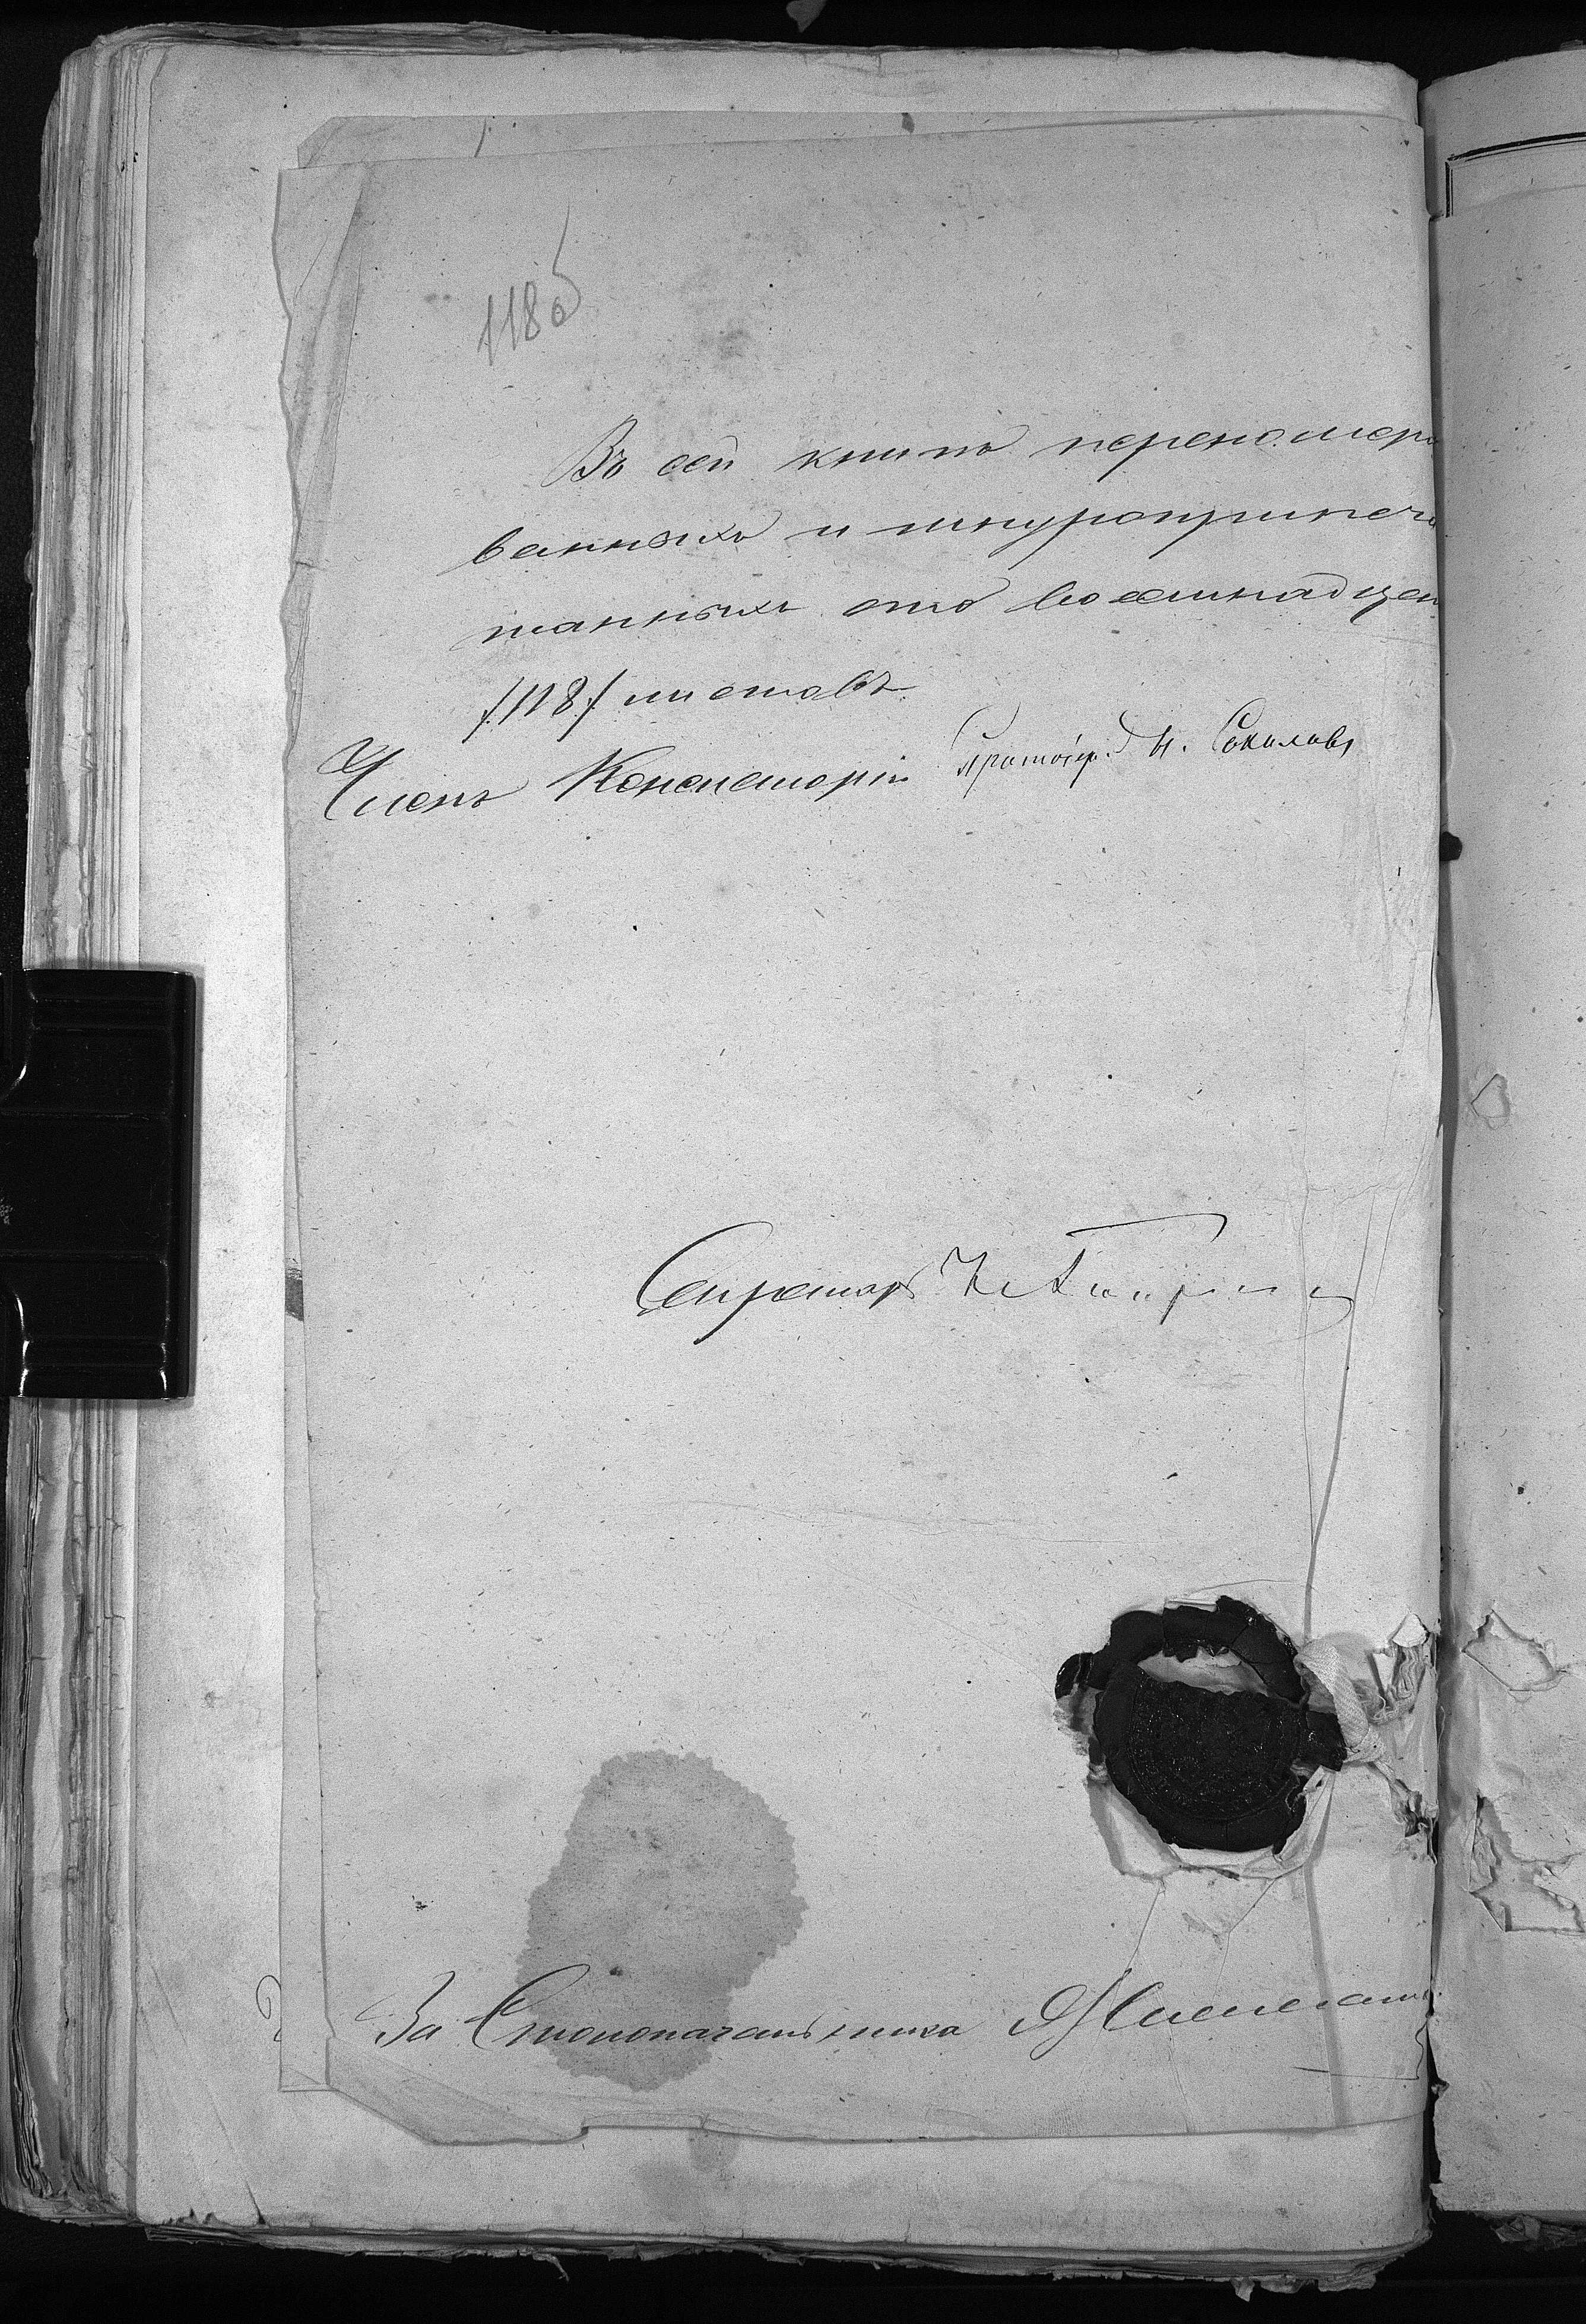 118 об
Въ сей книгѣ перенумеро
ванныхъ и шнуроприпеча
танныхъ сто восемнадцат
/118/ листовъ.
Членъ Консисторіи Протоіер. Н. Соколовъ
Секретарь
За Столоначальника